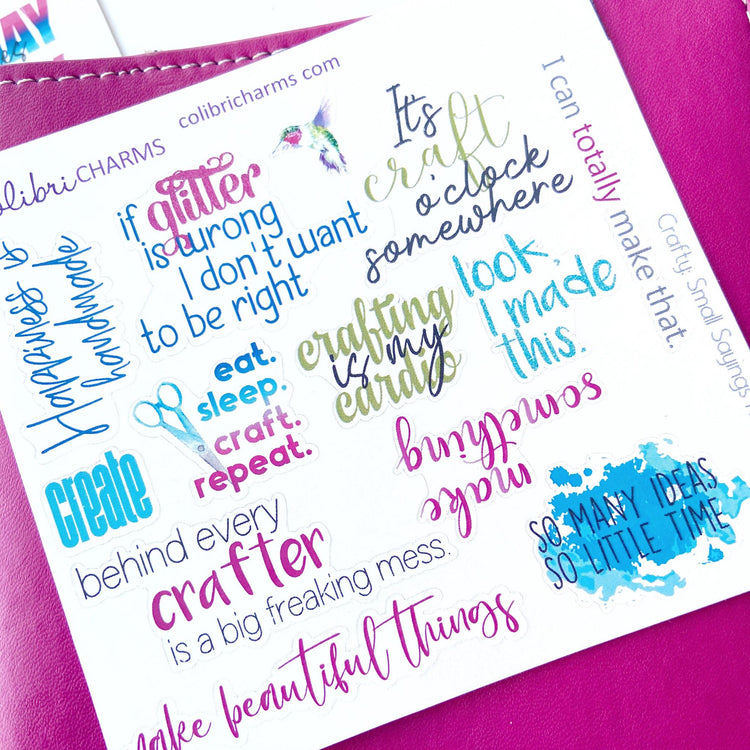 AY
colibricharms.com
olibriCHARMS
if glitter
is wrong
I don't want
to be right
It's
craft
o'clock
somewhere
I can totally make that.
Crafty: Small Sayings
Happiness is
handmade
look,
I made
this.
crafting
is my
cardio
eat.
sleep.
craft.
repeat.
create
make
something
SO MANY IDEAS
SO LITTLE TIME
behind every
crafter
is a big freaking mess.
make beautiful things